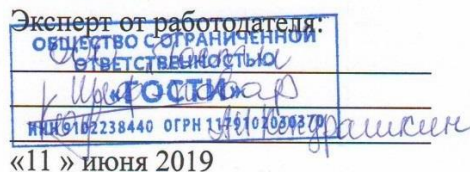 Эксперт от работодателя:
ОБЩЕСТВО С ОГРАНИЧЕННОЙ
ОТВЕТСТВЕННОСТЬЮ
«ГОСТИ»
ИНН 9102238440 ОГРН 1179102030370
А.И. Кондрашкин
«11 » июня 2019